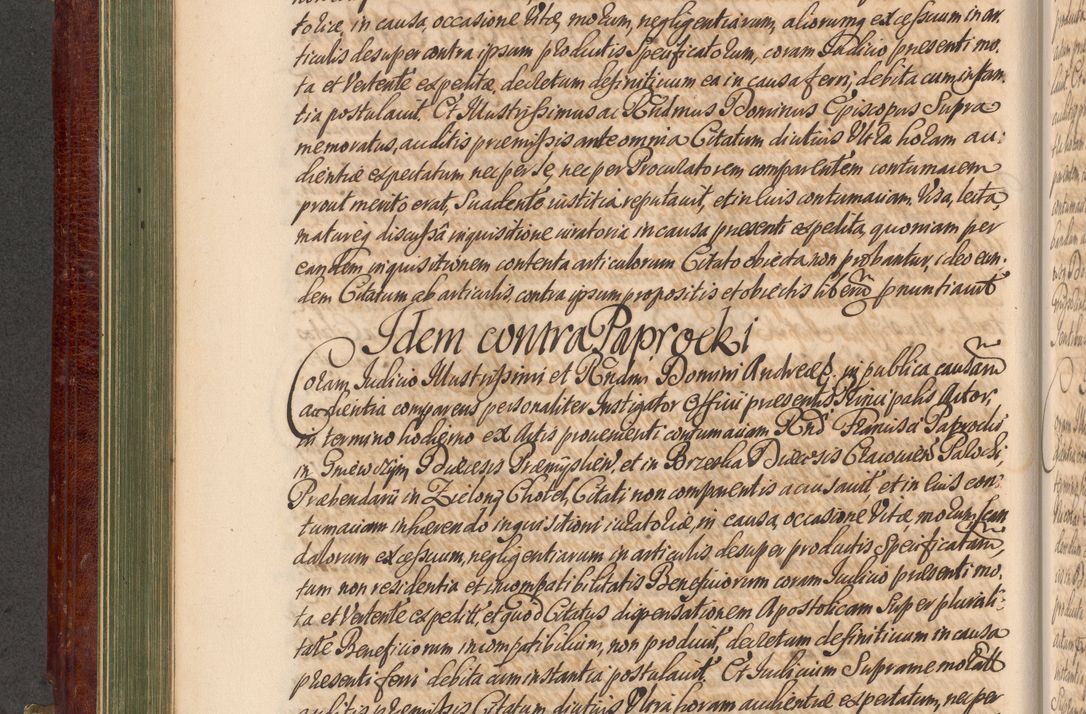 toriæ, in causa, occasione Vitæ, morum, negligentiarum, aliorumq excessuum in ar
ticulis desuper contra ipsum productis Specificatorum, coram Iudicio præsenti mo
ta et Vertente expeditæ, decretum definitivum ea in causa ferri, debita cum instan
tia postulavit. Et Illustrissimus ac Rndmus Dominus Episcopus Supra
memoratus, auditis præmissis ante omnia Citatum diutius Ultra horam au:
dientiæ expectatum nec per se, nec per Procuratorem comparentem contumacem
prout merito erat, Suadente iustitia reputavit, et in Eius contumaciam, Visa, lecta,
matureq discussâ inquisitione iuratoria in causa præsenti expedita, quoniam per
eandem inquisitionem contenta articulorum Citato obiecta non probantur, ideo eun
dem Citatum ab articulis, contra ipsum propositis et obiectis liberū pnuntiavit
Idem contra Paprocki
Coram Iudicio Illustrissimi et Rndmi Domini Andreæ, in publica causarū
audientia comparens personaliter Instigator Officii præsentis Principalis Actor,
in termino hodierno ex Actis provenienti contumaciam Rnd Francisci Paprocki
in Gniewczyn, Diæcesis Præmyslien, et in Brzeska Diæcesis Cracovien Parochi,
Præbendarii in Zielong Chotel, Citati non comparentis accusavit, et in Eius con
tumaciam inhærendo inquisitioni iuratoriæ, in causa, occasione Vitæ, morum, scan
dalorum excessuum, negligentiarum in articulis desuper productis Specificatarū,
tum non residentia et incompatibilitatis Beneficiorum coram Iudicio præsenti mo,
ta et Vertente expediti, et quod Citatus dispensationem Apostolicam Super plurali:
tate Beneficiorum incompatibilium, non produxit, decretum definitivum in causa
præsenti ferri debita cum instantia postulavit. Et Iudicium Supramemoratū
auditis præmissis Citatum diutius Ultra horam audientiæ expectatum, nec per